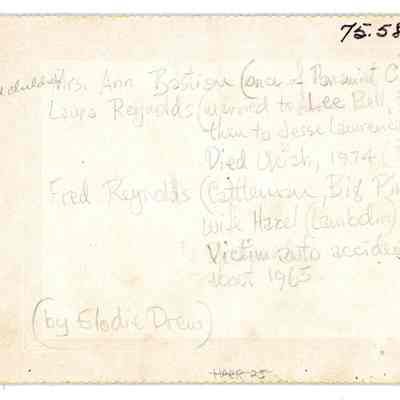 75.58
Mrs. Ann Bastian (once of Panamint C
Laura Reynolds (married to Lee Bell,
then to Jesse Lawrence
Died Utah, 1974
Fred Reynolds (Cattleman, Big Pin
wife Hazel (Lambdin)
Victim auto accide
about 1965
(by Elodie Drew)